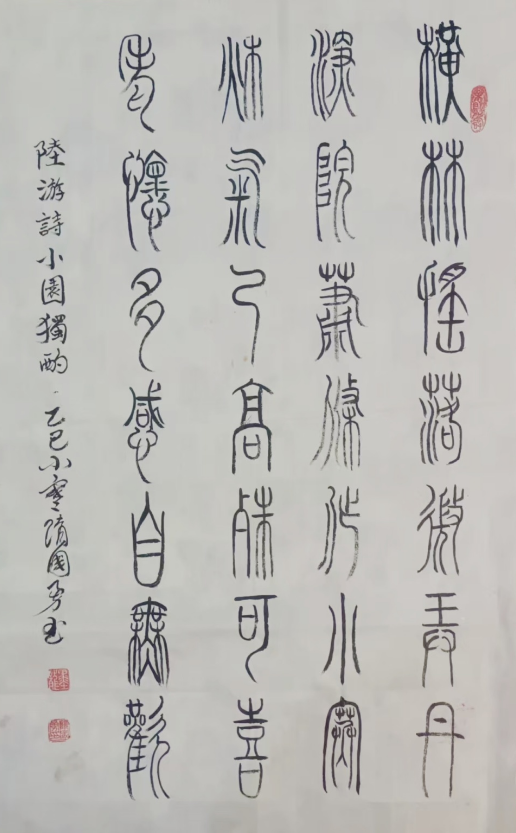 橫林搖落微弄丹
深院蕭條作小寒
秌氣已高殊可喜
老懷多感自無歡
陸游詩小園獨酌 乙巳小寒隋國勇书